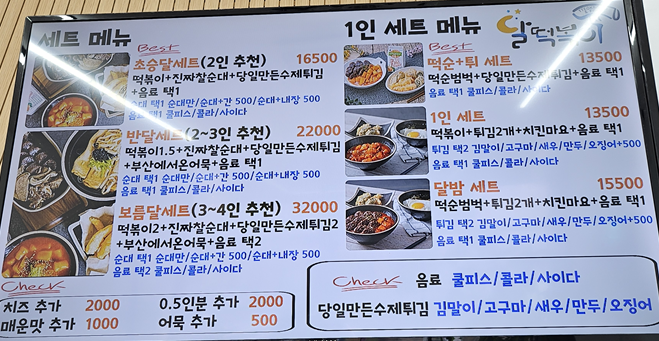 세트 메뉴
Best
초승달세트(2인 추천) 16500
떡볶이+진짜찰순대+당일만든수제튀김
+음료 택1
순대 택1 순대만/순대+간 500/순대+내장 500
음료 택1 쿨피스/콜라/사이다
반달세트(2~3인 추천) 22000
떡볶이1.5+진짜찰순대+당일만든수제튀김
+부산에서온어묵+음료 택1
순대 택1 순대만/순대+간 500/순대+내장 500
음료 택1 쿨피스/콜라/사이다
보름달세트(3~4인 추천) 32000
떡볶이2+진짜찰순대+당일만든수제튀김2
+부산에서온어묵+음료 택2
순대 택1 순대만/순대+간 500/순대+내장 500
음료 택2 쿨피스/콜라/사이다
Check
치즈 추가 2000 0.5인분 추가 2000
매운맛 추가 1000 어묵 추가 500
1인 세트 메뉴
달떡볶이
Best
떡순+튀 세트 13500
떡순범벅+당일만든수제튀김+음료 택1
음료 택1 쿨피스/콜라/사이다
1인 세트 13500
떡볶이+튀김2개+치킨마요+음료 택1
튀김 택2 김말이/고구마/새우/만두/오징어+500
음료 택1 쿨피스/콜라/사이다
달밤 세트 15500
떡순범벅+튀김2개+치킨마요+음료 택1
튀김 택2 김말이/고구마/새우/만두/오징어+500
음료 택1 쿨피스/콜라/사이다
Check 음료 쿨피스/콜라/사이다
당일만든수제튀김 김말이/고구마/새우/만두/오징어